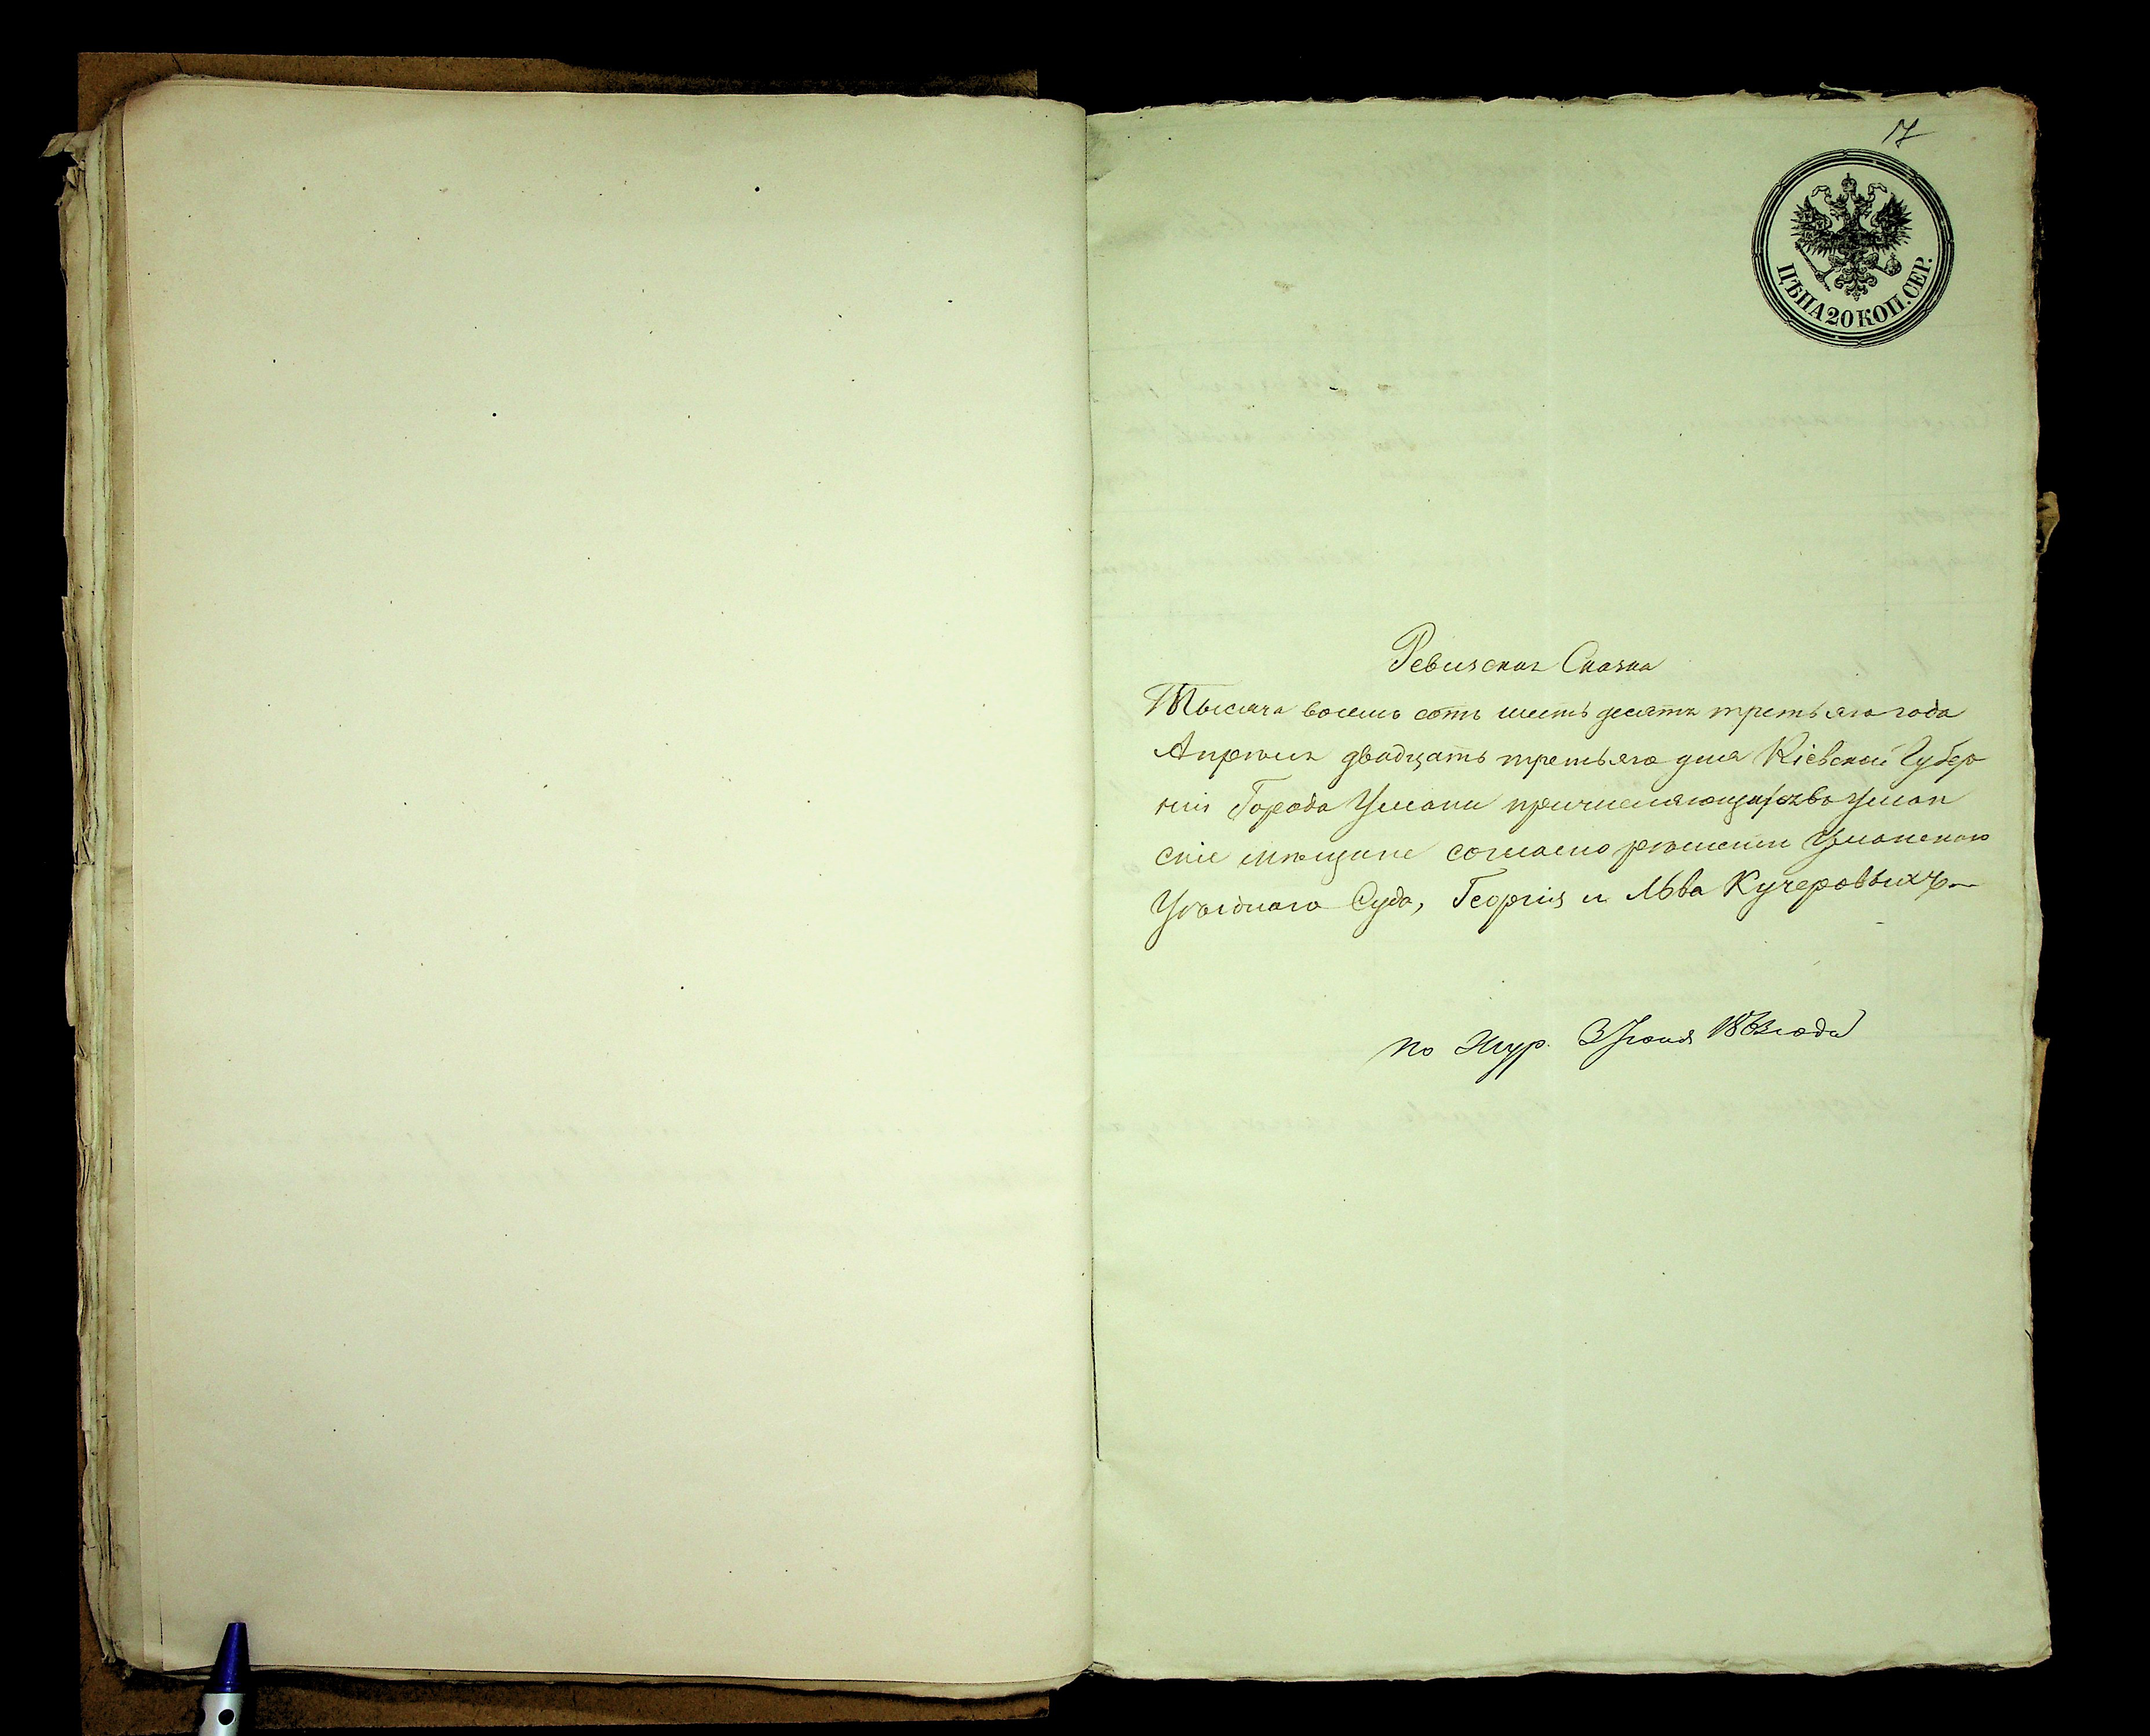 17
ЦѢНА 20 КОП. СЕР.
Ревизская Сказка
Тысяча восемь сотъ шестьдесятъ третьяго года
Апрѣля двадцать третьяго дня Кіевской Губер
ніи Города Умани причисляющихся во Уман
скіе мѣщане согласно рѣшенія Уманскаго
Уѣзднаго Суда, Георгія и Льва Кучеровыхъ
по Жур. 3 Іюня 1863 года